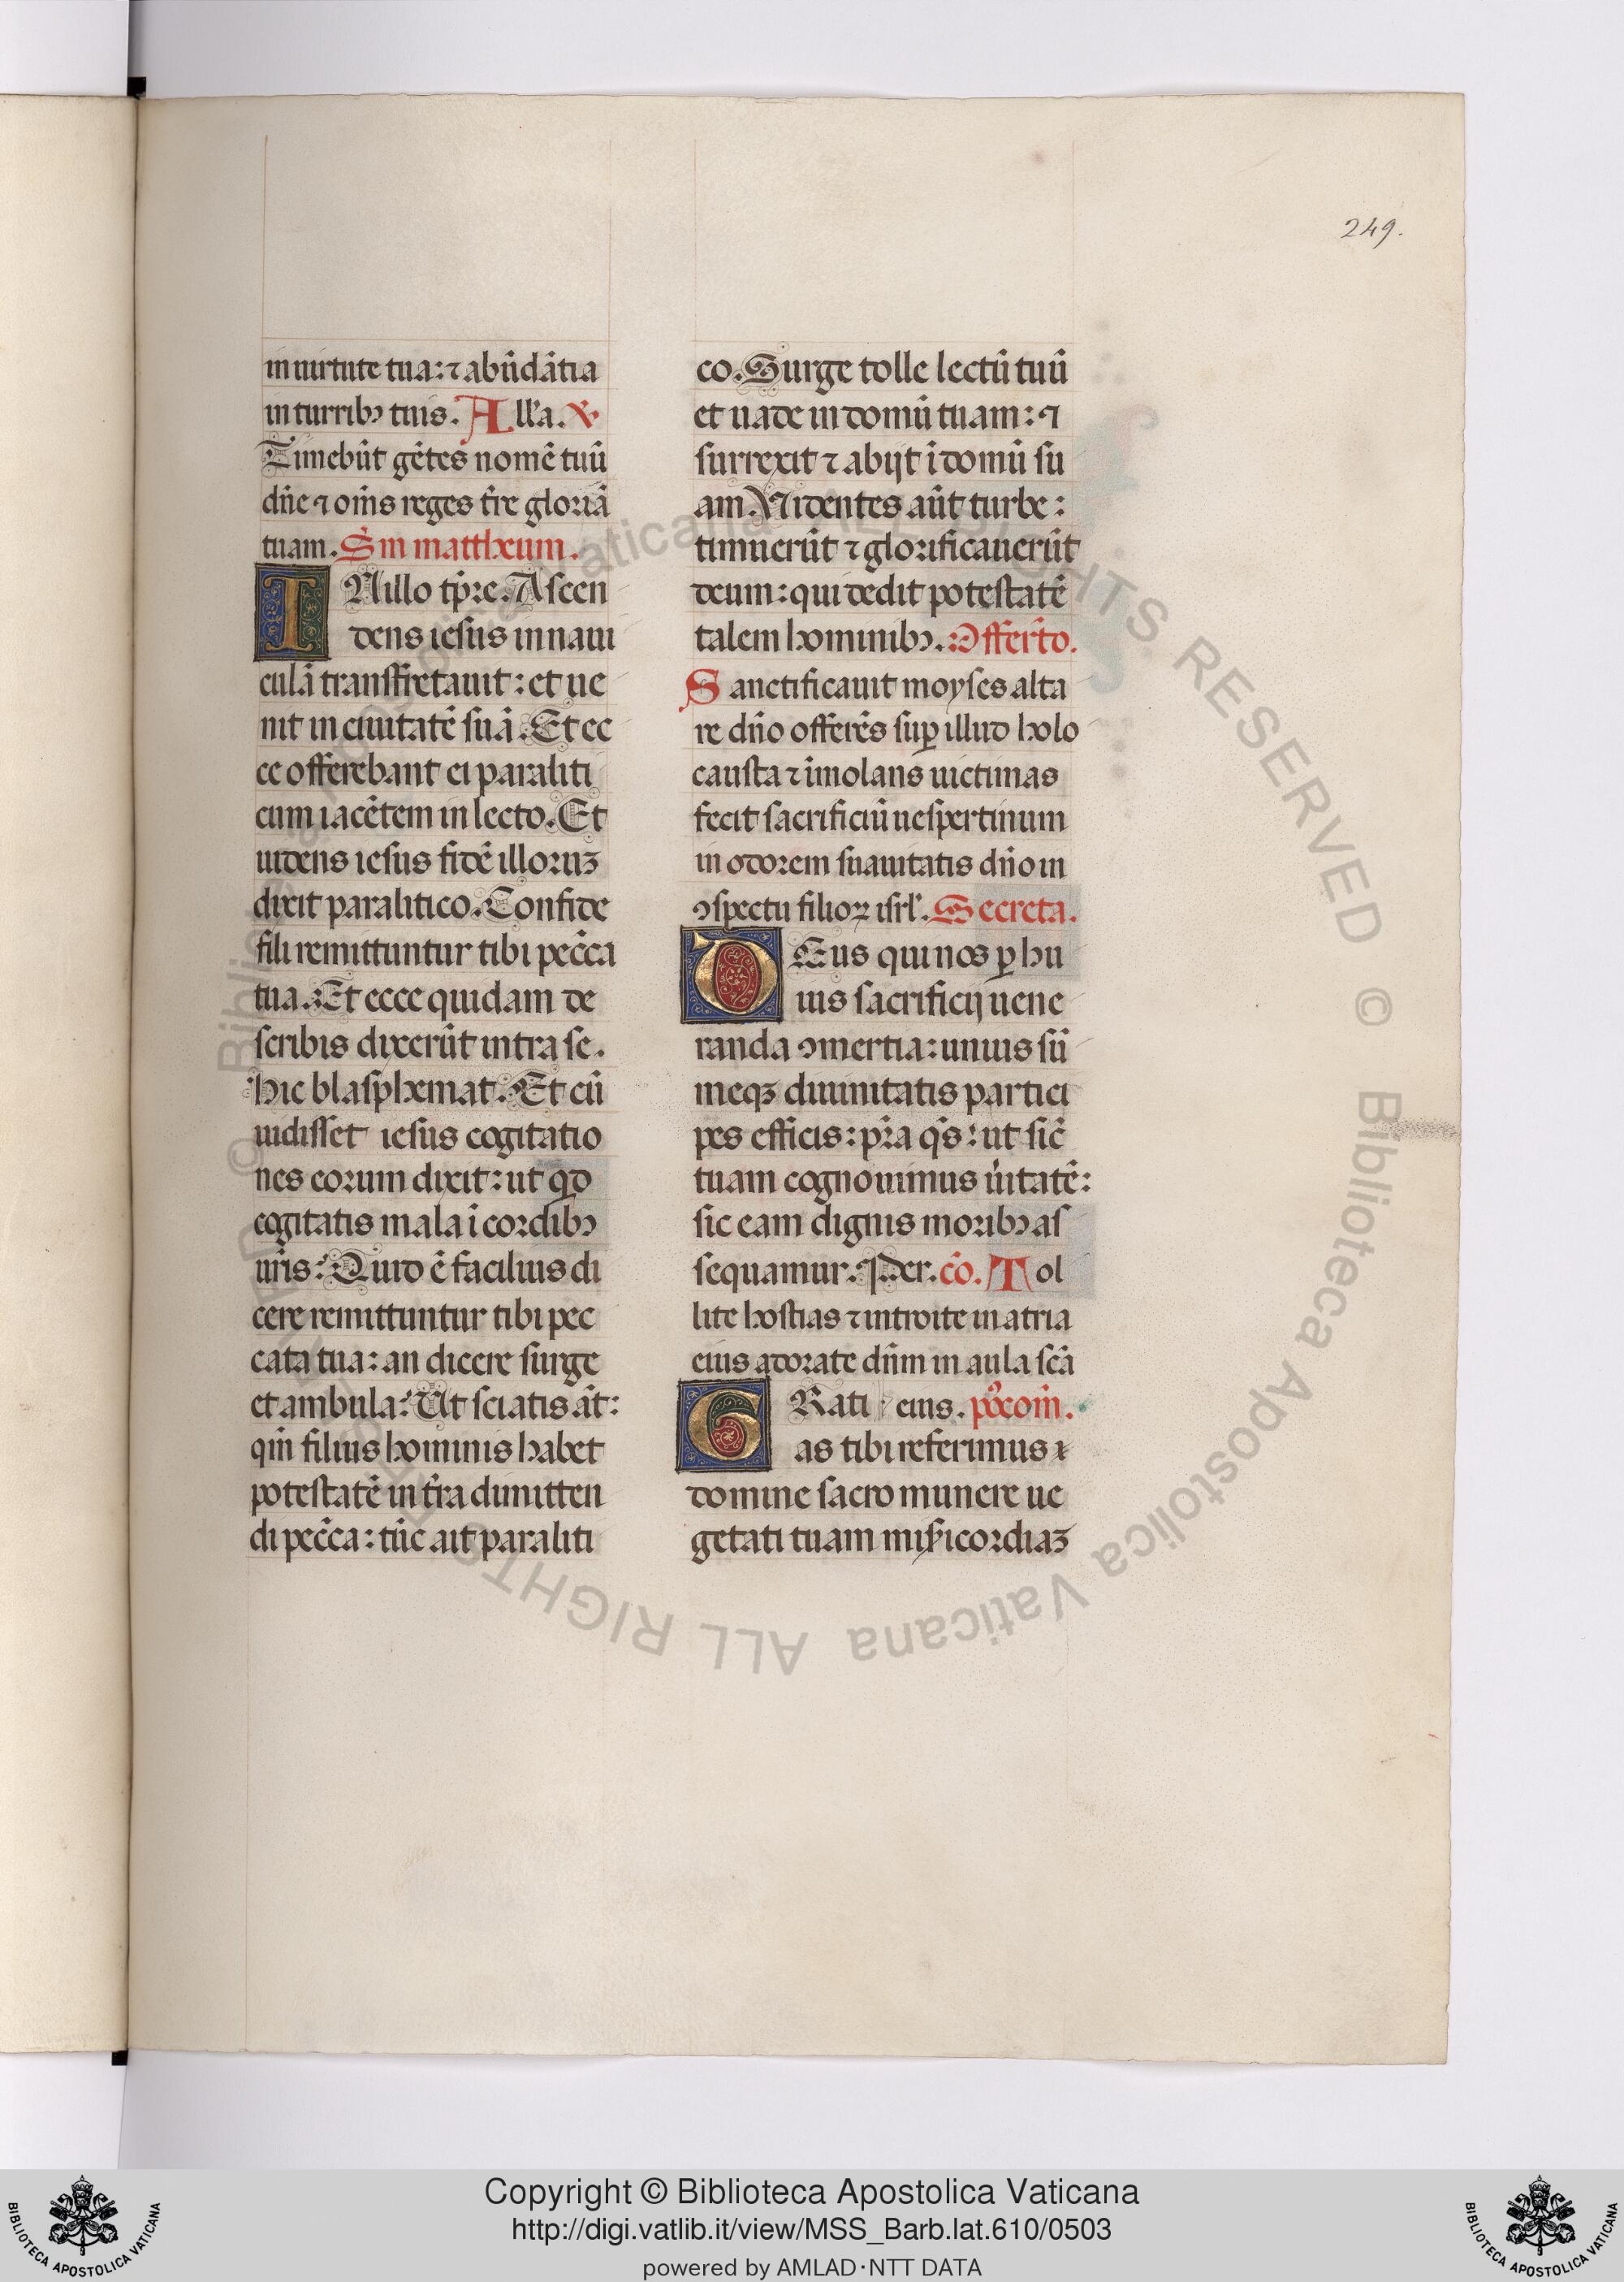 249.
in uirtute tua: ⁊ abūdātia
in turribꝫ tuis. All'a. ℣
Timebūt gētes nomē tuū
dn̄e ⁊ om̄s reges t̄re gloriā
tuam. Sm̄ mattheum.
INillo tp̄re. Ascen
dens iesus in naui
culā transfretauit: et ue
nit in ciuitatē suā. Et ec
ce offerebant ei paraliti
cum iacētem in lecto. Et
uidens iesus fidē illoruꝫ
dixit paralitico. Confide
fili remittuntur tibi pecc̄a
tua. Et ecce quidam de
scribis dixerūt intra se.
hic blasphemat. Et cū
uidisset iesus cogitatio
nes eorum dixit: ut qd
cogitatis mala ī cordibꝫ
ur̄is: Quid ē facilius di
cere remittuntur tibi pec
cata tua: an dicere surge
et ambula: Ut sciatis āt:
qm̄ filius hominis habet
potestatē in t̄ra dimitten
di pecc̄a: tūc ait paraliti
co. Surge tolle lectū tuū
et uade in domū tuam: ⁊
surrexit ⁊ abijt ī domū su
am. Uidentes aūt turbe:
timuerūt ⁊ glorificauerūt
deum: qui dedit potestatē
talem hominibꝫ. Offerto.
Sanctificauit moyses alta
re dn̄o offerēs suꝑ illud holo
causta ⁊ īmolans uictimas
fecit sacrificiū uespertinum
in odorem suauitatis dn̄o in
ꝯspectu filioꝝ isrl'. Secreta.
DEus qui nos ꝑ hu
ius sacrificij uene
randa ꝯmertia: unius sū
meqꝫ diuinitatis partici
pes efficis: pr̄a qs̄: ut sic̄
tuam cognouimus ūitatē:
sic eam dignis moribꝫ as
sequamur. Per. cō. Tol
lite hostias ⁊ introite in atria
eius adorate dn̄m in aula scā
GRati eius. poxcom̄.
as tibi referimus
domine sacro munere ue
getati tuam mis̄icordiaꝫ
© Biblioteca Apostolica Vaticana ALL RIGHTS RESERVED © Biblioteca Apostolica Vaticana ALL RIGHTS RESERVED
Copyright © Biblioteca Apostolica Vaticana
http://digi.vatlib.it/view/MSS_Barb.lat.610/0503
powered by AMLAD·NTT DATA
BIBLIOTECA APOSTOLICA VATICANA
BIBLIOTECA APOSTOLICA VATICANA